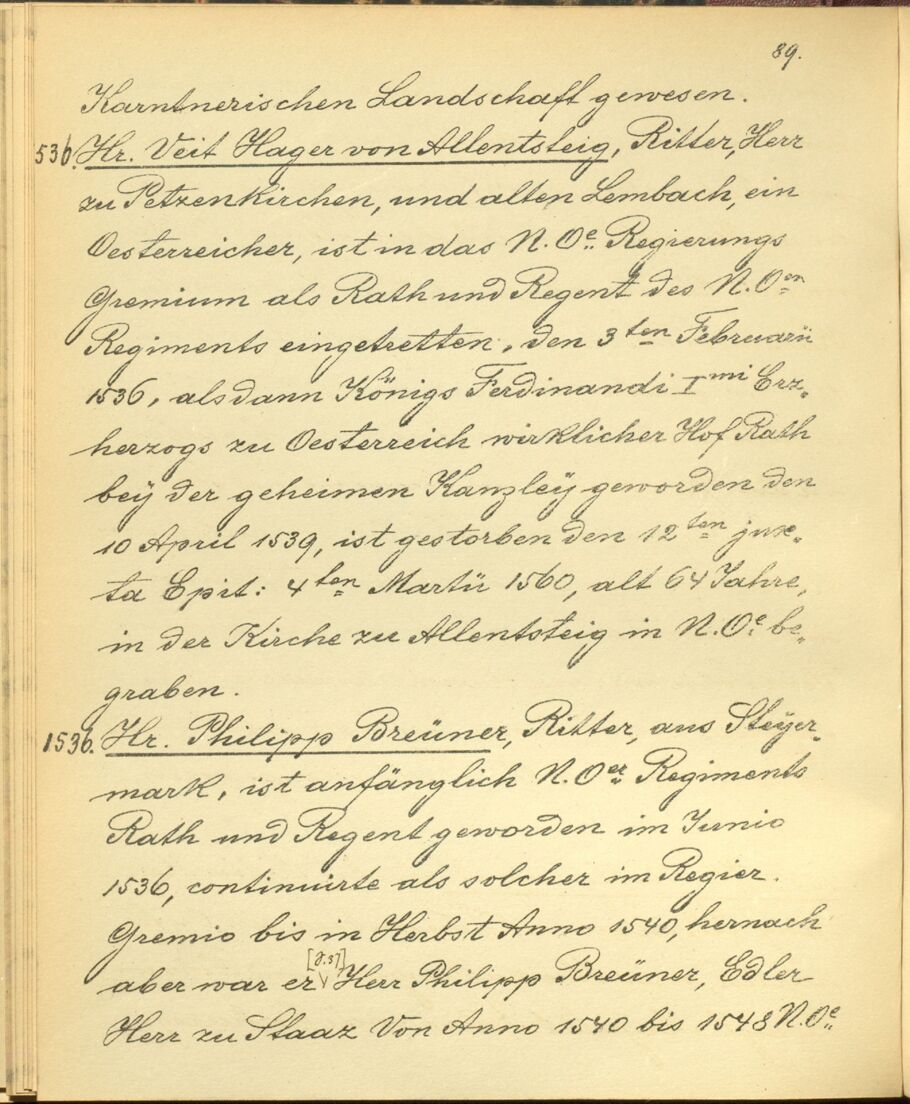 89.
Karntnerischen Landschaft gewesen.
536. Hr. Veit Hager von Allentsteig, Ritter, Herr
zu Petzenkirchen, und alten Lembach, ein
Oesterreicher, ist in das N. Oe. Regierungs
Gremium als Rath und Regent des N. Oen
Regiments eingetretten, den 3ten Februarii
1536, alsdann Königs Ferdinandi Imi Erz-
herzogs zu Oesterreich wirklicher Hof Rath
bey der geheimen Kanzley geworden den
10 April 1539, ist gestorben den 12ten jux-
ta Epit: 4ten Martii 1560, alt 64 Jahre,
in der Kirche zu Allentsteig in N. Oe. be-
graben.
1536. Hr. Philipp Breüner, Ritter, aus Steÿer-
mark, ist anfänglich N. Oer Regiments
Rath und Regent geworden im Junio
1536, continuirte als solcher im Regier.
Gremio bis in Herbst Anno 1540, hernach
aber war er Herr Philipp Breüner, Edler
Herr zu Staaz Von Anno 1540 bis 1548 N. Oe.